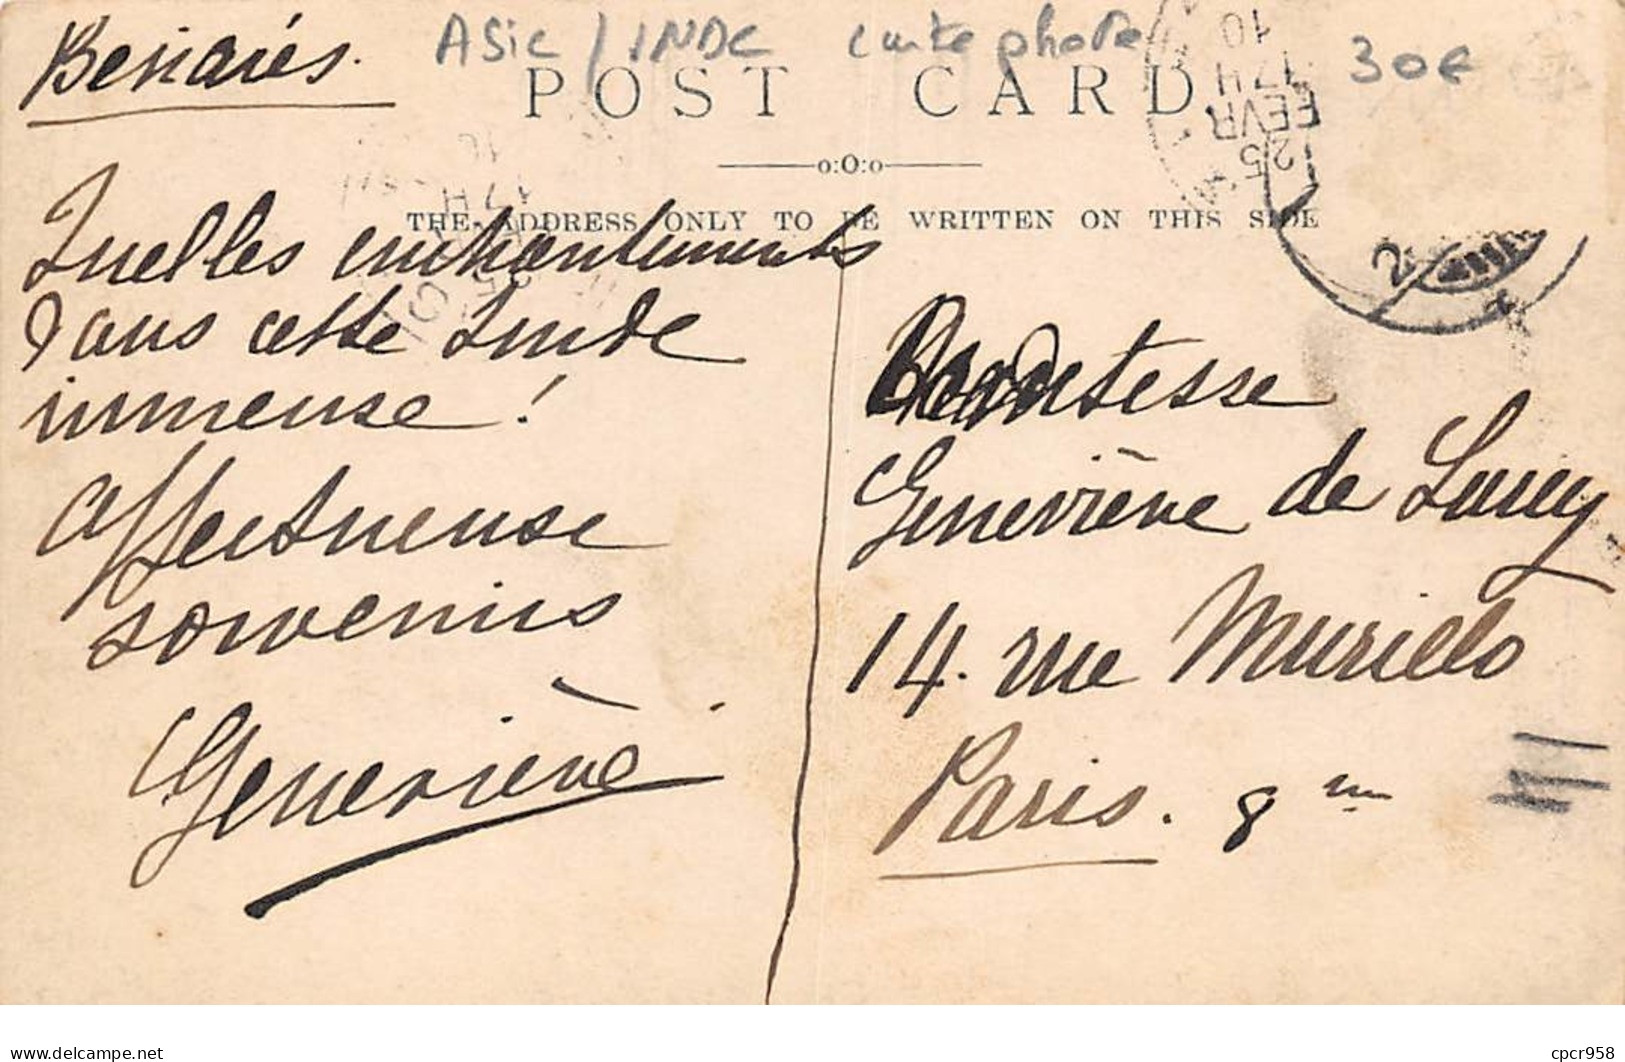 Benarès.
Asie / INDE carte photo 30€
POST CARD
o:O:o
THE ADDRESS ONLY TO BE WRITTEN ON THIS SIDE
Quelles enchantements
dans cette Inde
immense !
Affectueuse
souvenirs
Geneviève
Comtesse
Geneviève de
14. rue Murillo
Paris. 8 me
17H
25
FEVR
10
17H
25
2
cpcr958